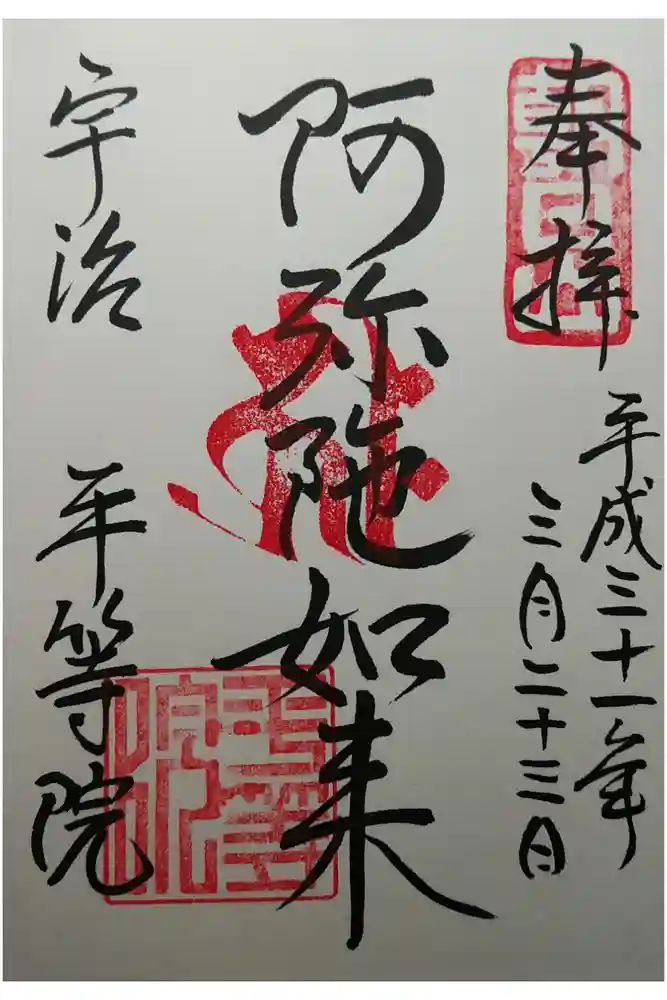 奉拝
平成三十一年
三月二十三日
阿弥陀如来
宇治 平等院